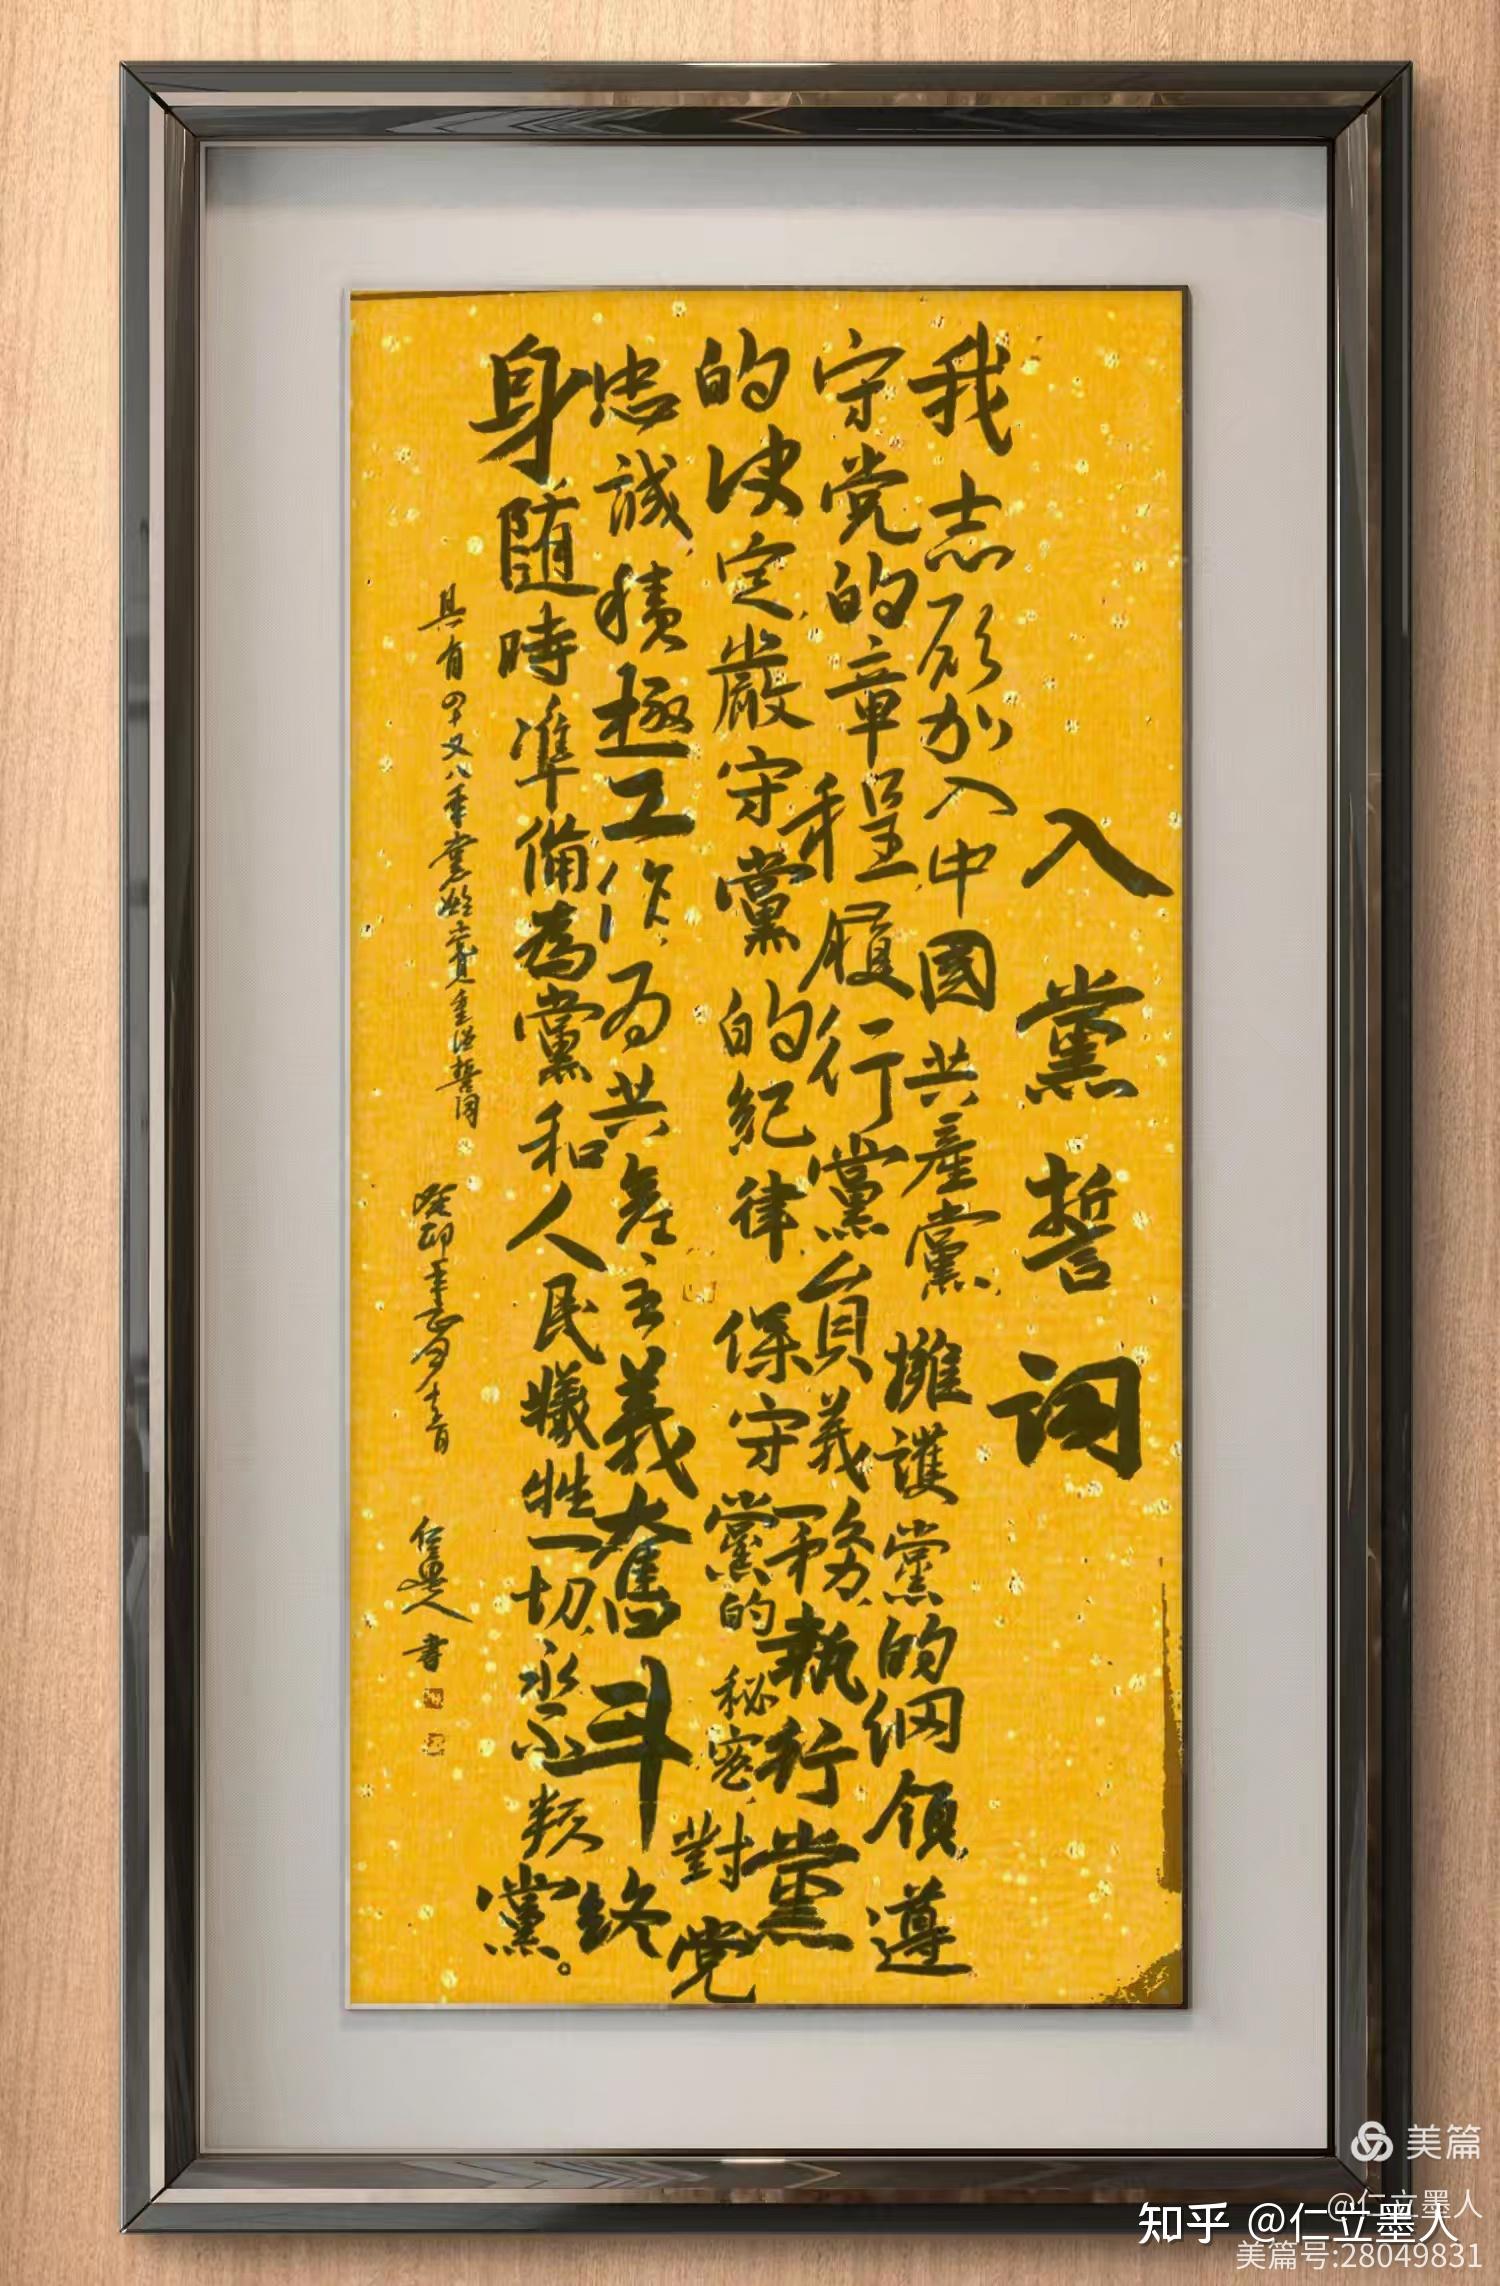 入黨誓词
我志愿加入中國共產黨擁護黨的纲领遵
守党的章程履行黨員義務執行黨
的决定嚴守黨的紀律保守黨的秘密對党
忠誠積極工作为共產主義奮斗终
身随時準備為黨和人民犧牲一切永不叛黨。
具有四十又八年党龄党員重温誓词
癸卯年正月十六日
仁立墨人書
美篇
@仁立墨人
知乎 @仁立墨人
美篇号:28049831